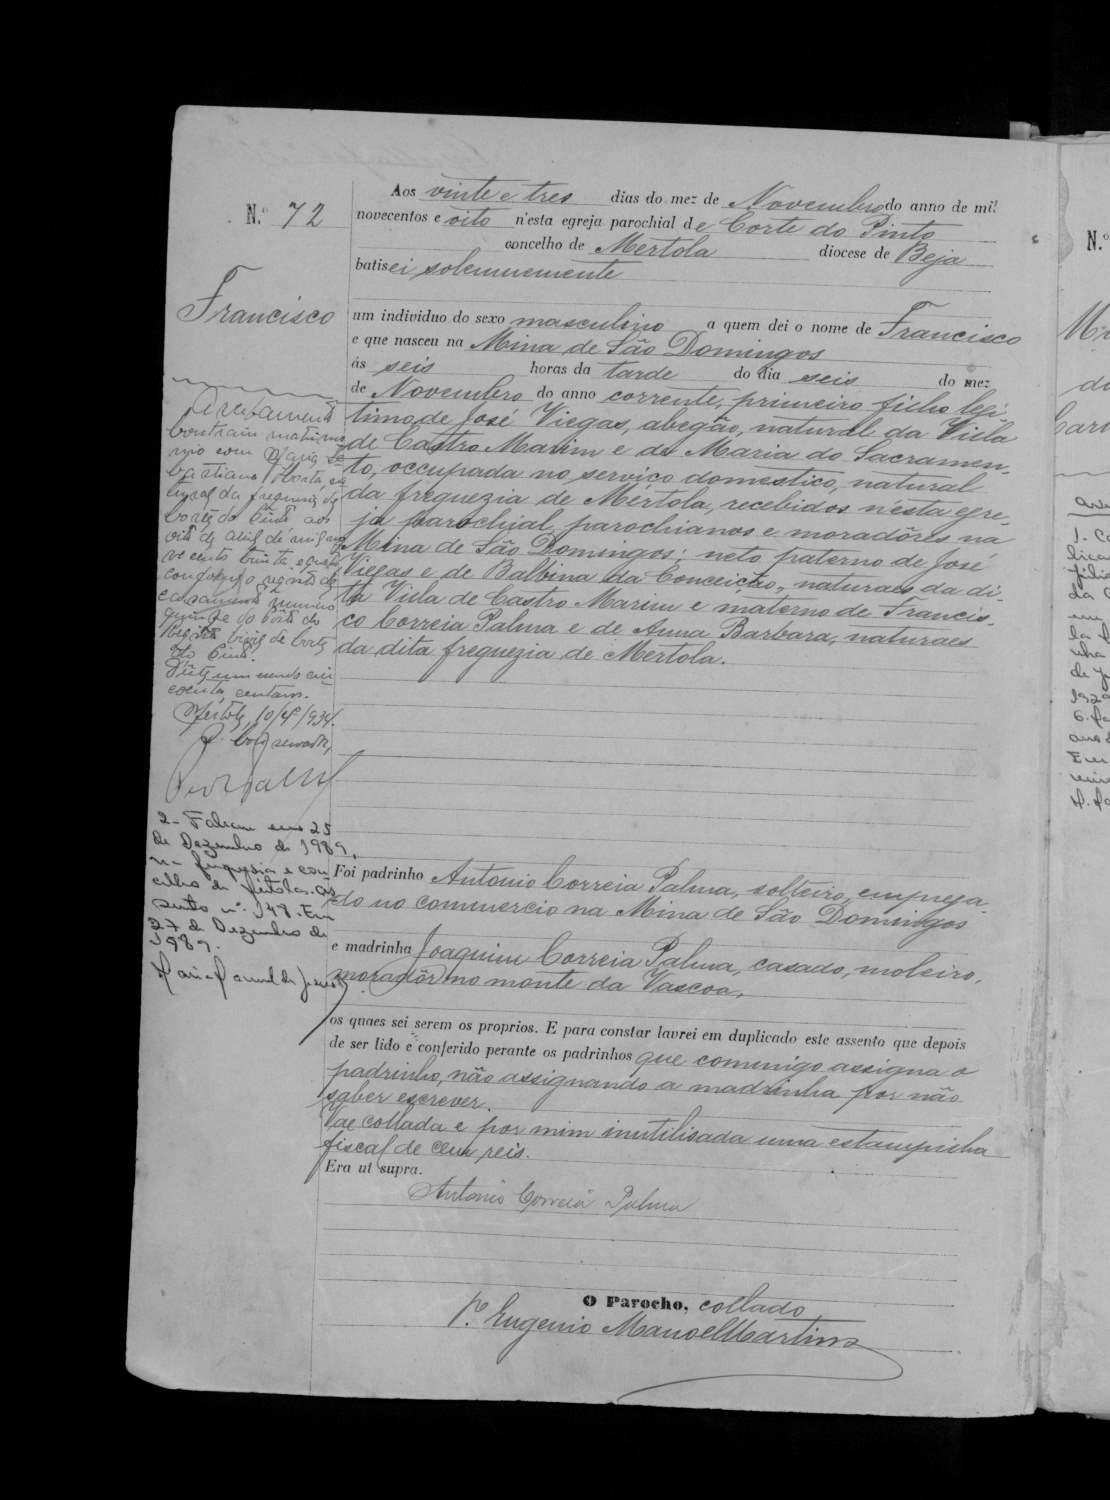 N.º 72
Francisco
Aos vinte e tres dias do mez de Novembro do anno de mil
novecentos e oito n'esta egreja parochial de Corte do Pinto
concelho de Mertola diocese de Beja
batisei solemnemente
um individuo do sexo masculino a quem dei o nome de Francisco
e que nasceu na Mina de São Domingos
ás seis horas da tarde do dia seis do mez
de Novembro do anno corrente, primeiro filho legi-
timo de José Viegas, abegão, natural da Villa
de Castro Marim e de Maria do Sacramen-
to, occupada no serviço domestico, natural
da freguezia de Mértola, recebidos n'esta egre-
ja parochial, parochianos e moradôres na
Mina de São Domingos; neto paterno de José
Viegas e de Balbina da Conceição, naturaes da di-
ta Villa de Castro Marim e materno de Francis-
co Correia Palma e de Anna Barbara, naturaes
da dita freguezia de Mertola.
Foi padrinho Antonio Correia Palma, solteiro, emprega-
do no commercio na Mina de São Domingos
e madrinha Joaquim Correia Palma, casado, moleiro,
moradôr no monte da Vascoa,
os quaes sei serem os proprios. E para constar lavrei em duplicado este assento que depois
de ser lido e conferido perante os padrinhos que commigo assigna o
padrinho, não assignando a madrinha por não
saber escrever.
Vae collada e por mim inutilisada uma estampilha
fiscal de cem reis.
Era ut supra.
Antonio Correia Palma
O Parocho, collado
P.e Eugenio Manoel Martins
Contraiu matrimo
nio com Maria Se
bastiana Horta, na
tural da freguezia de
Corte do Pinto aos
oito de abril de mil no
ve centos trinta e quatro
conforme registo de
casamento numero
quinze do Posto do
Registo Civil de Corte
do Pinto.
coenta centavos.
Mértola, 10/4/934.
2- Faleceu em 25
de Dezembro de 1989,
na freguesia e con
celho de Mértola. As
sento nº. 148. Em
27 de Dezembro de
1989.
N.º